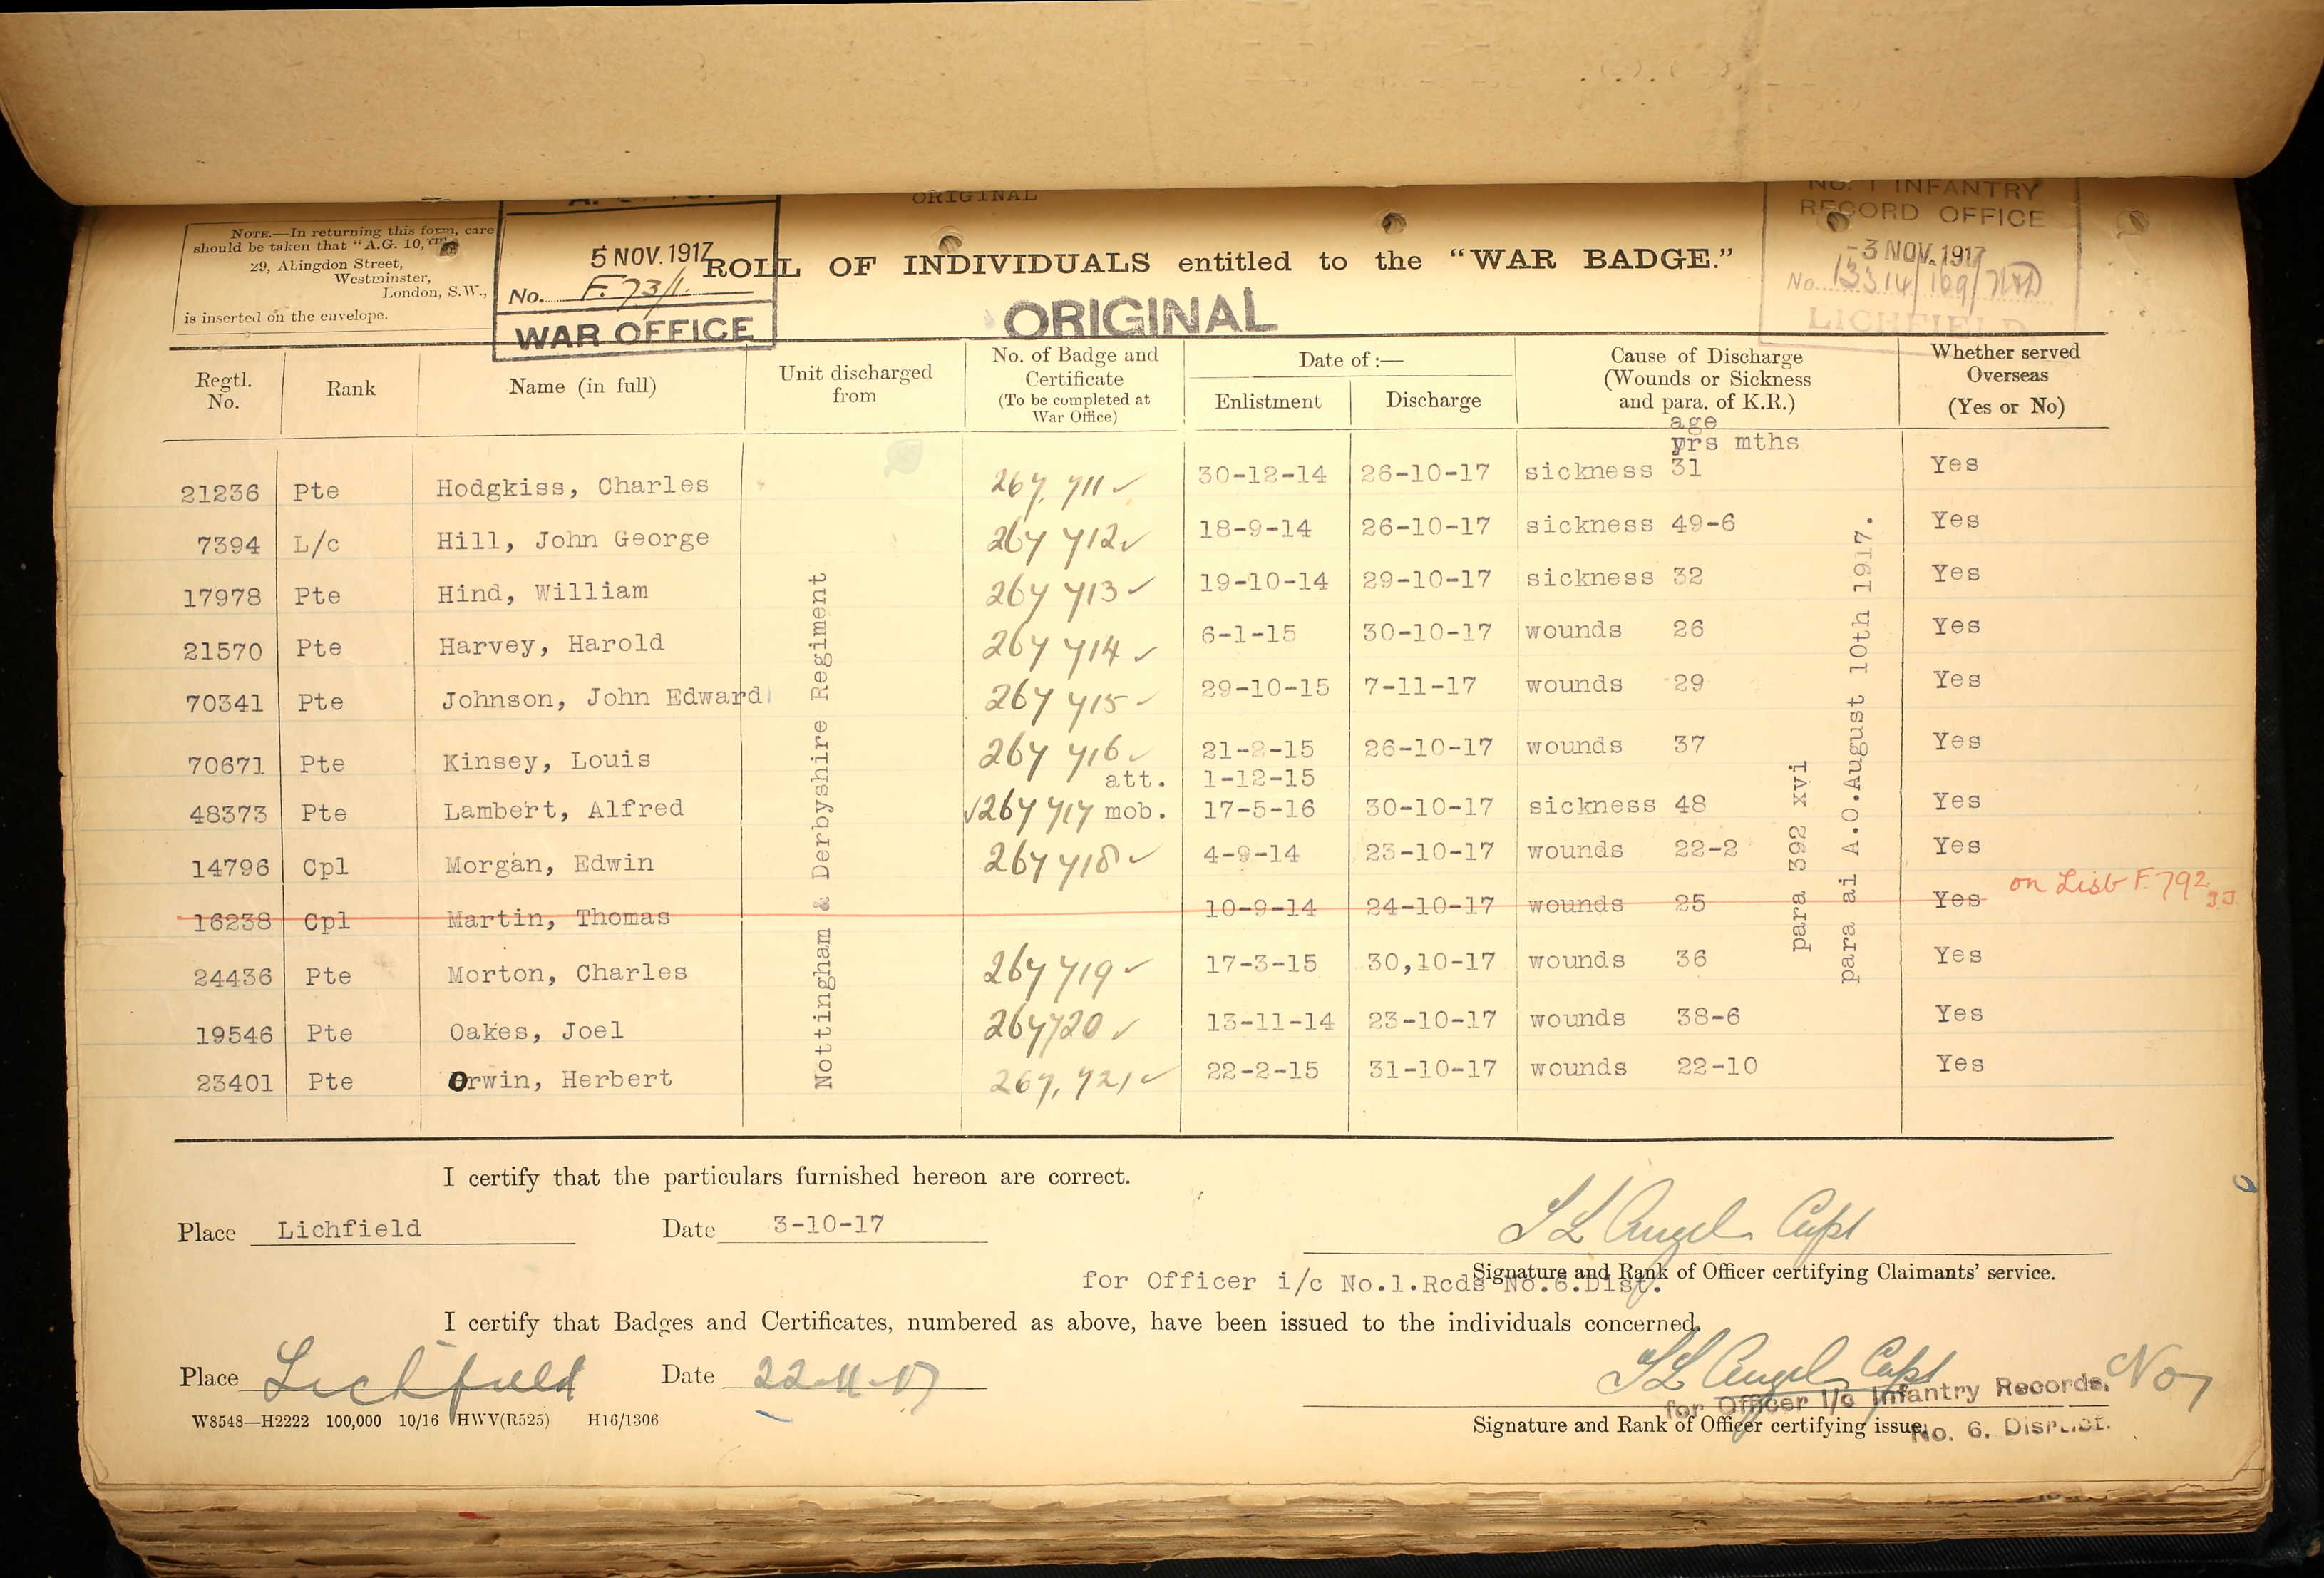 ORIGINAL
NOTE.—In returning this form, care
should be taken that "A.G. 10,"
29, Abingdon Street,
Westminster,
London, S.W.,
is inserted on the envelope.
5 NOV. 1917
No. F.73/1.
WAR OFFICE
ROLL OF INDIVIDUALS entitled to the "WAR BADGE."
ORIGINAL
NO. 1 INFANTRY
RECORD OFFICE
-3 NOV. 1917
No. 13314/169/
LICHFIELD
Regtl. No. Rank Name (in full) Unit discharged from No. of Badge and Certificate (To be completed at War Office) Date of :— Enlistment Discharge Cause of Discharge (Wounds or Sickness and para. of K.R.) Whether served Overseas (Yes or No)
age
yrs mths
21236 Pte Hodgkiss, Charles 267,711 ✓ 30-12-14 26-10-17 sickness 31 Yes
7394 L/c Hill, John George 267 712 ✓ 18-9-14 26-10-17 sickness 49-6 Yes
17978 Pte Hind, William 267 713 ✓ 19-10-14 29-10-17 sickness 32 Yes
21570 Pte Harvey, Harold 267 714 ✓ 6-1-15 30-10-17 wounds 26 Yes
70341 Pte Johnson, John Edward 267 715 ✓ 29-10-15 7-11-17 wounds 29 Yes
70671 Pte Kinsey, Louis 267 716 ✓ 21-2-15 26-10-17 wounds 37 Yes
att. 1-12-15
48373 Pte Lambert, Alfred ✓267 717 mob. 17-5-16 30-10-17 sickness 48 Yes
14796 Cpl Morgan, Edwin 267 718 ✓ 4-9-14 23-10-17 wounds 22-2 Yes
16238 Cpl Martin, Thomas 10-9-14 24-10-17 wounds 25 Yes on List F.792 J.J.
24436 Pte Morton, Charles 267 719 ✓ 17-3-15 30,10-17 wounds 36 Yes
19546 Pte Oakes, Joel 267720 ✓ 13-11-14 23-10-17 wounds 38-6 Yes
23401 Pte Orwin, Herbert 267,721 ✓ 22-2-15 31-10-17 wounds 22-10 Yes
Nottingham & Derbyshire Regiment
para 392 xvi
para ai A.O.August 10th 1917.
I certify that the particulars furnished hereon are correct.
Place Lichfield Date 3-10-17
S L Angel Capt
Signature and Rank of Officer certifying Claimants' service.
for Officer i/c No.1.Rcds No.6.Dist.
I certify that Badges and Certificates, numbered as above, have been issued to the individuals concerned.
Place Lichfield Date 22-11-17
S L Angel Capt
for Officer I/c Infantry Records.
Signature and Rank of Officer certifying issue.
No. 6. District.
W8548—H2222 100,000 10/16 HWV(R525) H16/1306